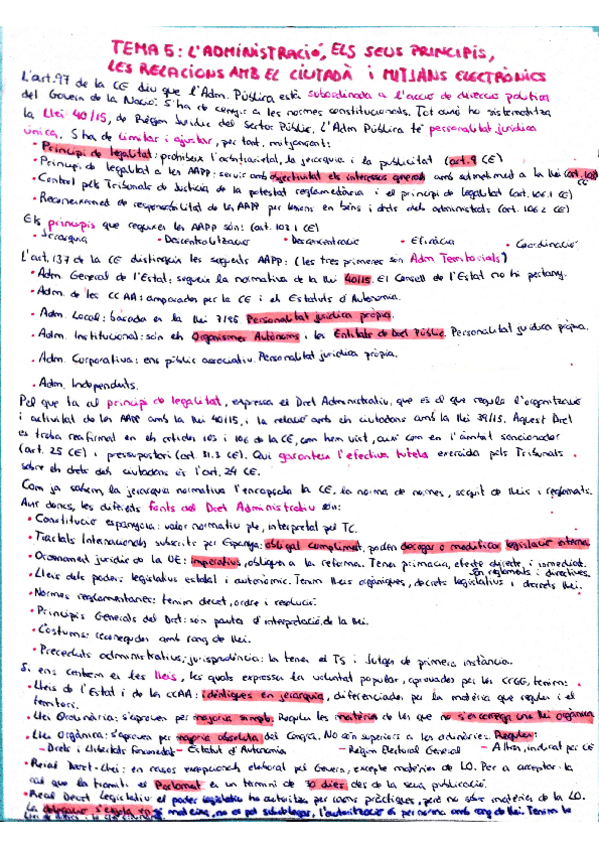 TEMA 5: L'ADMINISTRACIÓ, ELS SEUS PRINCIPIS,
LES RELACIONS AMB EL CIUTADÀ I MITJANS ELECTRÒNICS
L'art. 97 de la CE diu que l'Adm. Pública està subordinada a l'acció de direcció política
del Govern de la Nació. S'ha de cenyir a les normes constitucionals. Tot això ho sistematitza
la Llei 40/15, de Règim Jurídic del Sector Públic. L'Adm Pública té personalitat jurídica
única. S'ha de limitar i ajustar, per tant, mitjançant:
• Principi de legalitat: prohibeix l'arbitrarietat, la jerarquia i la publicitat (art. 9 CE)
• Principi de legalitat a les AAPP: servir amb objectivitat els interessos generals amb sotmetiment a la llei (art. 103 CE)
• Control pels Tribunals de Justícia de la potestat reglamentària i el principi de legalitat (art. 106.1 CE)
• Reconeixement de responsabilitat de les AAPP per lesions en béns i drets dels administrats (art. 106.2 CE)
Els principis que regeixen les AAPP són: (art. 103.1 CE)
• Jerarquia • Descentralització • Desconcentració • Eficàcia • Coordinació
L'art. 137 de la CE distingeix les següents AAPP: (les tres primeres són Adm Territorials)
• Adm. General de l'Estat: segueix la normativa de la llei 40/15. El Consell de l'Estat no hi pertany.
• Adm. de les CCAA: amparades per la CE i els Estatuts d'Autonomia.
• Adm. Local: basada en la llei 7/85 Personalitat jurídica pròpia.
• Adm. Institucional: són els Organismes Autònoms i les Entitats de Dret Públic. Personalitat jurídica pròpia.
• Adm. Corporativa: ens públic associatiu. Personalitat jurídica pròpia.
• Adm. Independents.
Pel que fa al principi de legalitat, expressa el Dret Administratiu, que és el que regula l'organització
i activitat de les AAPP amb la llei 40/15, i la relació amb els ciutadans amb la llei 39/15. Aquest Dret
es troba reafirmat en els articles 103 i 106 de la CE, com hem vist, així com en l'àmbit sancionador
(art. 25 CE) i pressupostari (art. 31.3 CE). Qui garanteix l'efectiva tutela exercida pels Tribunals
sobre els drets dels ciutadans és l'art. 24 CE.
Com ja sabem, la jerarquia normativa l'encapçala la CE, la norma de normes, seguit de lleis i reglaments.
Així doncs, les diferents fonts del Dret Administratiu són:
• Constitució espanyola: valor normatiu ple, interpretat pel TC.
• Tractats Internacionals subscrits per Espanya: obligat compliment, poden derogar o modificar legislació interna
• Ordenament jurídic de la UE: imperatius, obliguen a la reforma. Tenen primacia, efecte directe, i immediat.
Són reglaments i directives.
• Lleis dels poders legislatius estatal i autonòmic. Tenim lleis orgàniques, decrets legislatius i decrets llei.
• Normes reglamentàries: tenim decret, ordre i resolució.
• Principis Generals del Dret: són pauta d'interpretació de la llei.
• Costums: reconegudes amb rang de llei.
• Precedents administratius; jurisprudència: la tenen el TS i Jutges de primera instància.
Si ens centrem en les lleis, les quals expressen la voluntat popular, aprovades per les CCGG, tenim:
• Lleis de l'Estat i de les CCAA: idèntiques en jerarquia, diferenciades per la matèria que regulen i el
territori.
• Llei Ordinària: s'aproven per majoria simple. Regulen les matèries de les que no s'encarrega una llei orgànica
• Llei Orgànica: s'aproven per majoria absoluta del Congrés. No són superiors a les ordinàries. Regulen:
– Drets i Llibertats Fonamentals – Estatut d'Autonomia – Règim Electoral General – Altres, indicat per CE
• Reial Decret-Llei: en casos excepcionals elaborat pel Govern, excepte matèries de LO. Per a acceptar-la
cal que la tramiti el Parlament en un termini de 30 dies des de la seva publicació.
• Reial Decret Legislatiu: el poder legislatiu ho autoritza per raons pràctiques, però no sobre matèries de la LO.
La delegació s'esgota en si mateixa, no es pot subdelegar, l'autorització és per norma amb rang de llei. Tenim la